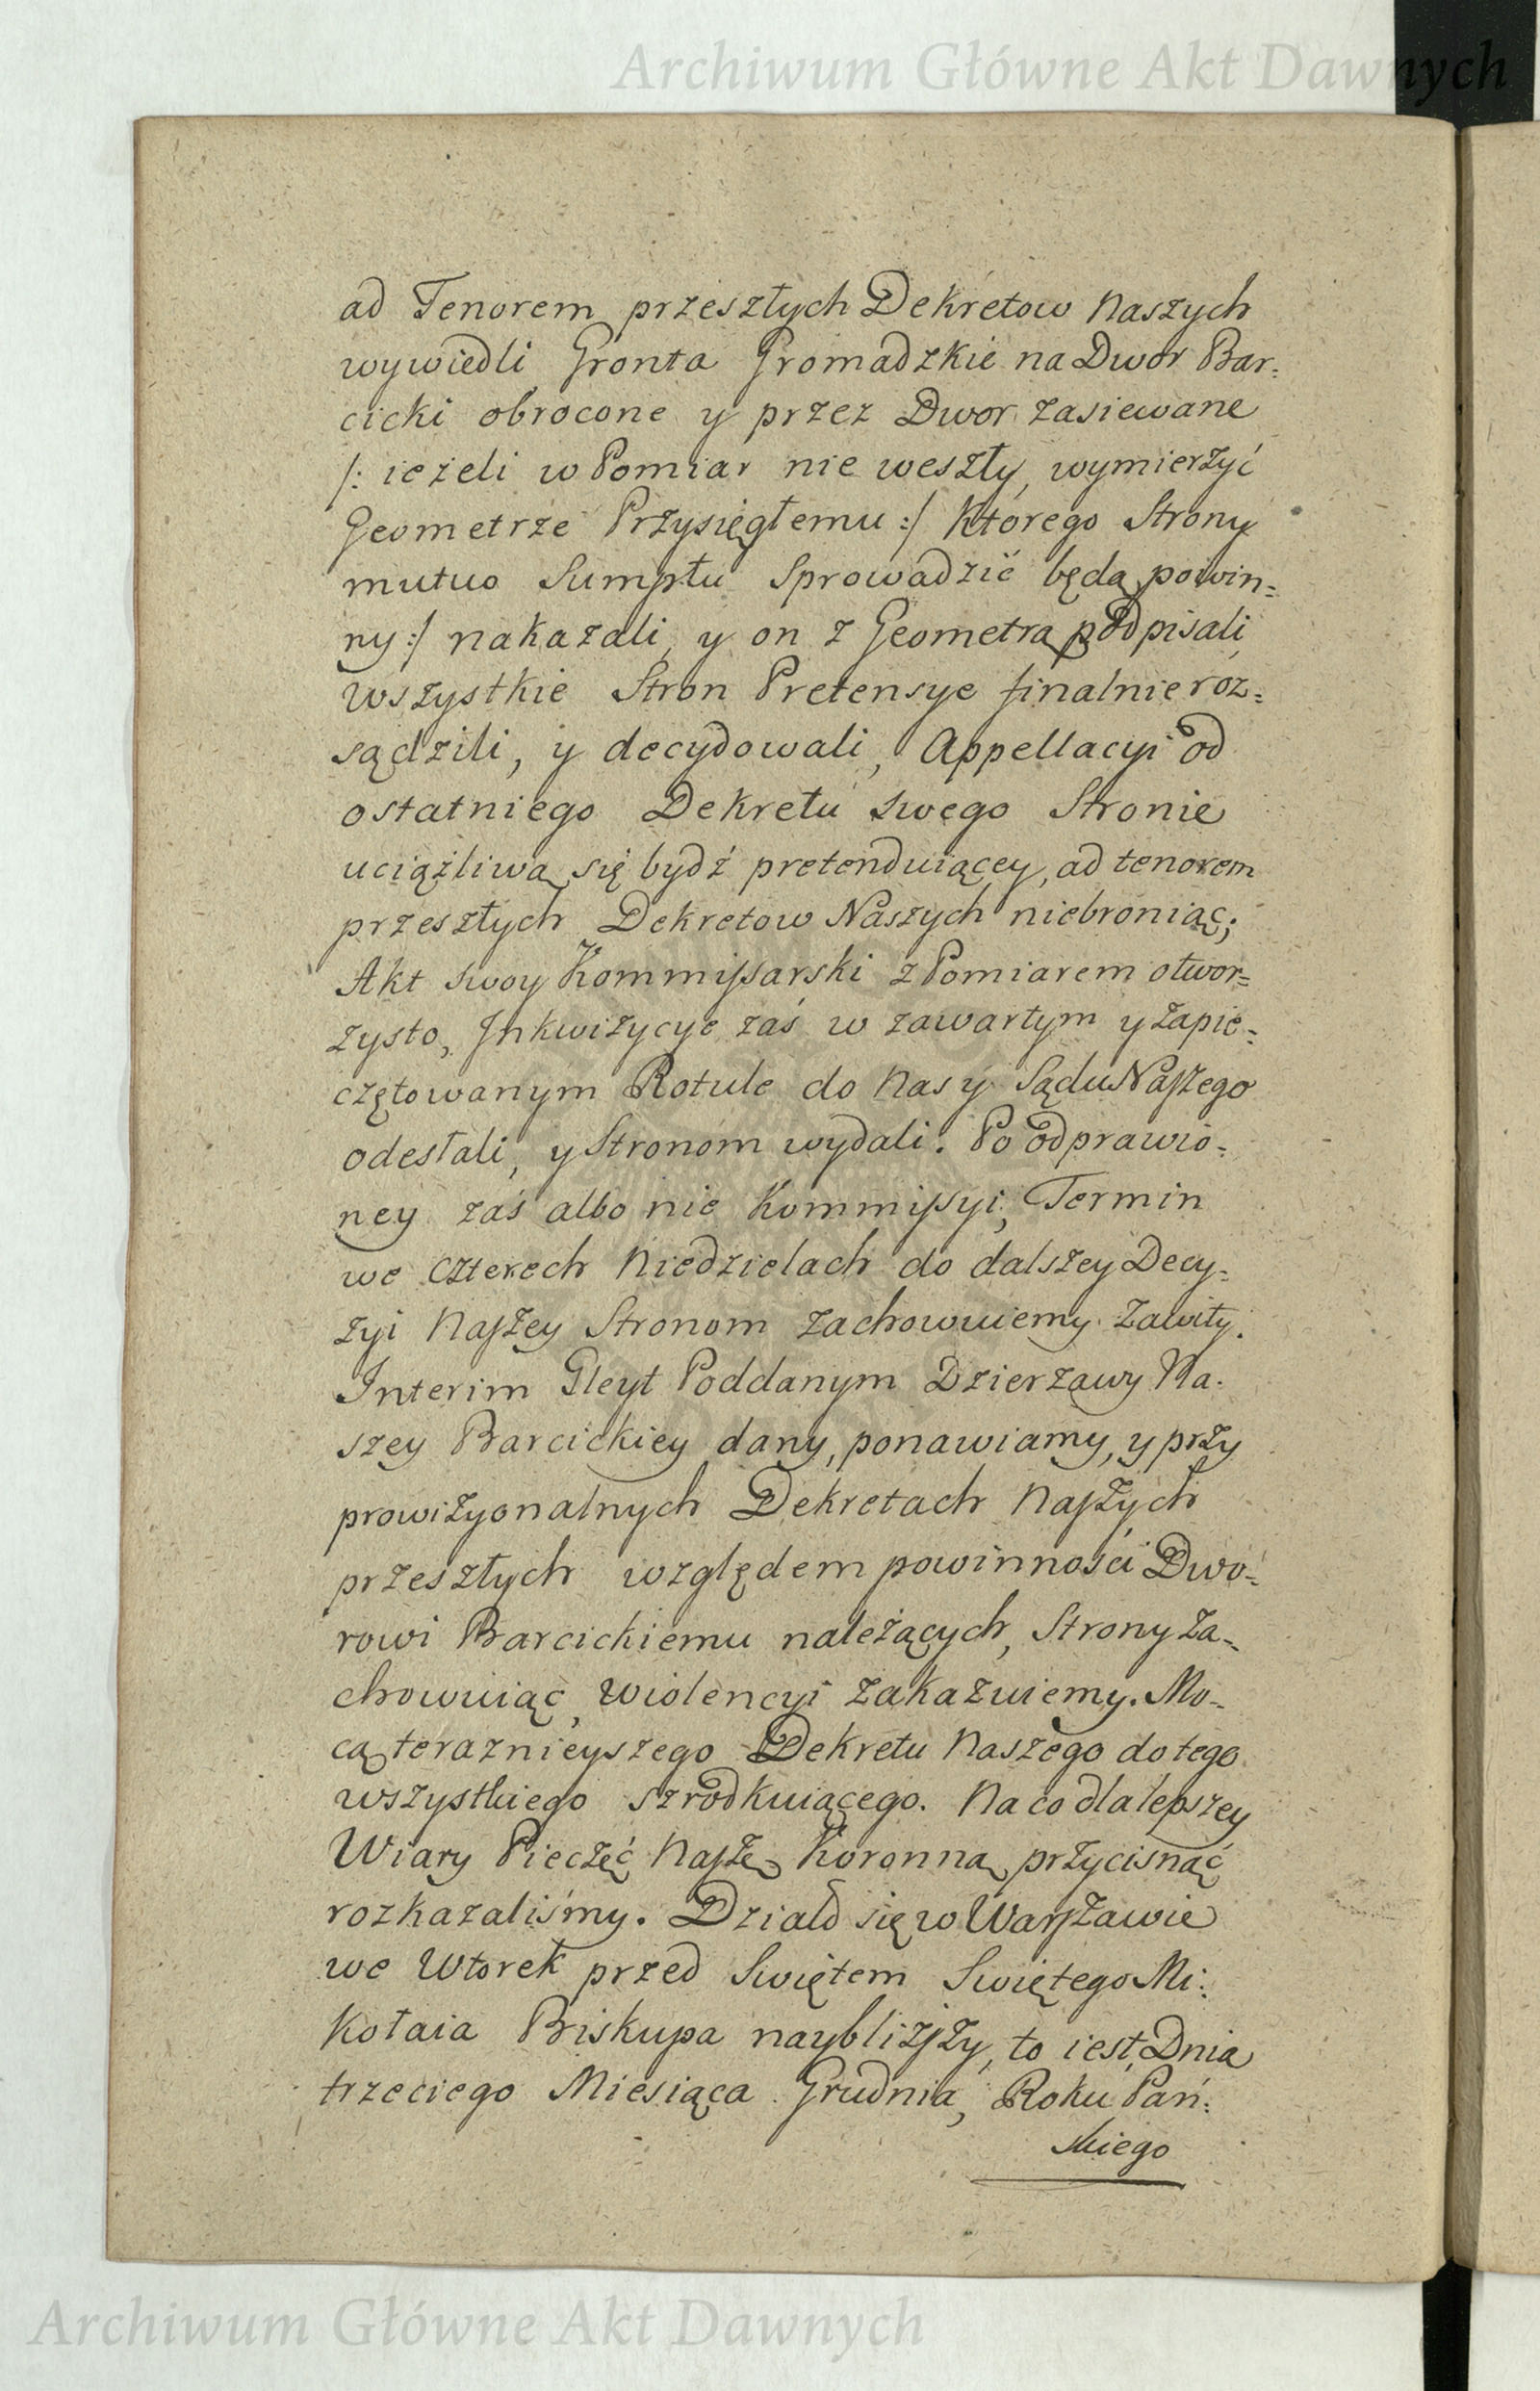 Archiwum Główne Akt Dawnych
ad Tenorem przeszłych Dekretow Naszych
wywiedli Gronta Gromadzkie na Dwor Bar=
cicki obrocone y przez Dwor zasiewane
/: ieżeli w Pomiar nie weszły, wymierzyć
Geometrze Przysięgłemu :/ ktorego Strony
mutuo Sumptu Sprowadzić będą powin=
ny :/ nakazali, y on z Geometrą podpisali,
wszystkie Stron Pretensye finalnie roz=
sądzili, y decydowali, Appellacyi od
ostatniego Dekretu swego Stronie
uciążliwą się bydź pretenduiącey, ad tenorem
przeszłych Dekretow Naszych niebroniąc;
Akt swoy Kommissarski z Pomiarem otwor=
zysto, Inkwizycye zaś w zawartym y zapie=
czętowanym Rotule do Nas y Sądu Naszego
odesłali, y Stronom wydali. Po odprawio=
ney zaś albo nie Kommissyi, Termin
we czterech Niedzielach do dalszey Decy=
zyi Naszey Stronom zachowuiemy zawity.
Interim Gleyt Poddanym Dzierzawy Na=
szey Barcickiey dany, ponawiamy, y przy
prowizyonalnych Dekretach Naszych
przeszłych względem powinności Dwo=
rowi Barcickiemu należących, Strony za=
chowuiąc, wiolencyi zakazuiemy. Mo=
cą teraznieyszego Dekretu Naszego do tego
wszystkiego szrodkuiącego. Na co dla lepszey
Wiary Pieczęć Naszą Koronną przycisnąć
rozkazaliśmy. Działo się w Warszawie
we Wtorek przed Swiętem Swiętego Mi=
kołaia Biskupa naybliższy, to iest, Dnia
trzeciego Miesiąca Grudnia, Roku Pań=
skiego
Archiwum Główne Akt Dawnych